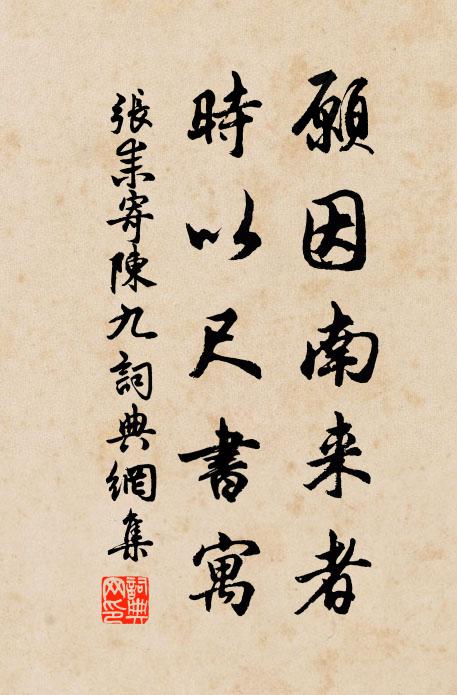 願因南来者
時以尺書寓
張耒寄陳九詞典網集
詞典網印